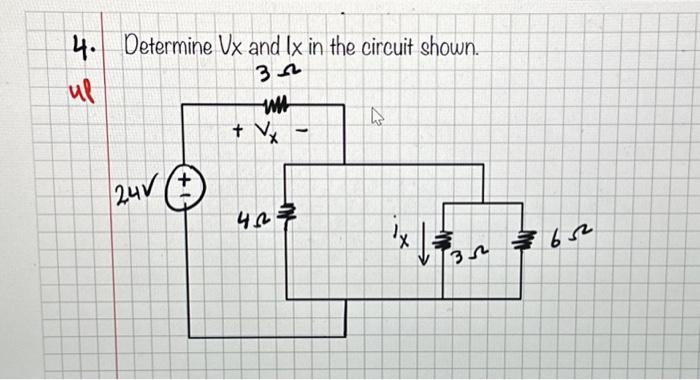 4. Determine Vx and Ix in the circuit shown.
3 Ω
+ Vx -
24V
+
-
4Ω
ix
3 Ω
6 Ω